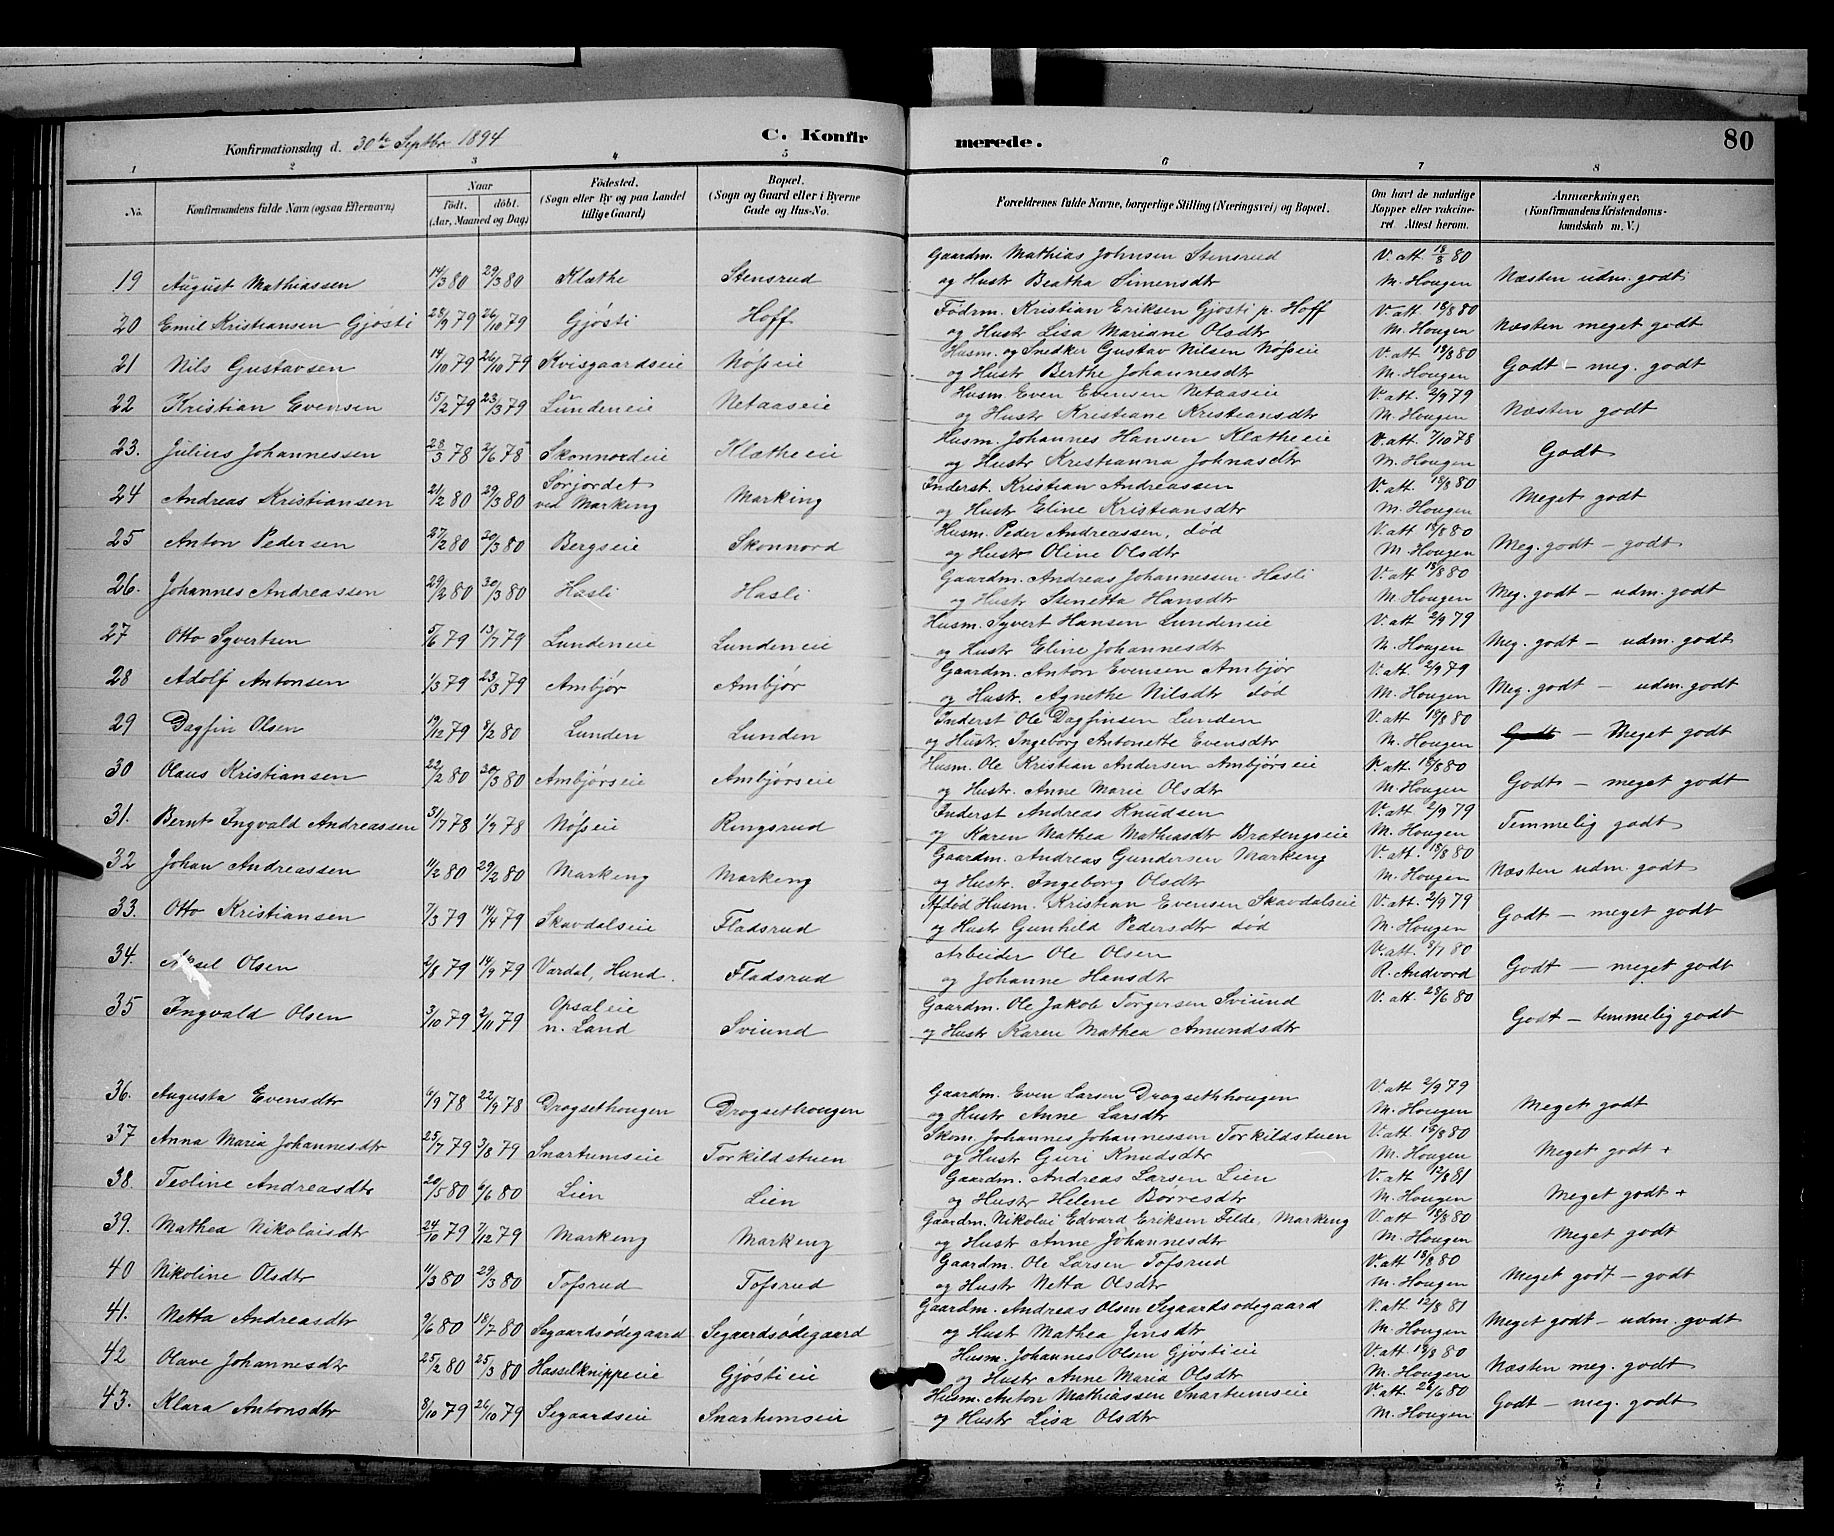 80
Konfirmationsdag d. 30te Septbr 1894 C. Konfirmerede.
1 2 3 4 5 6 7 8
No. Konfirmandens fulde Navn (ogsaa Efternavn) Naar födt. döbt. (Aar, Maaned og Dag) Födested. (Sogn eller By og paa Landet tillige Gaard) Bopæl. (Sogn og Gaard eller i Byerne Gade og Hus-No. Forældrenes fulde Navne, borgerlige Stilling (Næringsvei) og Bopæl. Om havt de naturlige Kopper eller vakcineret. Attest herom. Anmærkninger. (Konfirmandens Kristendomskundskab m. V.)
19 August Mathiassen 14/3 80 29/3 80 Klæthe Stensrud Gaardm. Mathias Johnsen Stensrud og Hustr Beatha Simensdtr V. att 18/8 80 M. Hougen Næsten udm. godt
20 Emil Kristiansen Gjøsti 28/9 79 26/10 79 Gjøsti Hoff Födrm. Kristian Eriksen Gjøsti p. Hoff og Hustr Lisa Mariane Olsdtr V. att 18/8 80 M. Hougen Næsten meget godt
21 Nils Gustavsen 14/10 79 26/10 79 Kvisgaardseie Nøsseie Husm. og Snedker Gustav Nilsen Nøsseie og Hustr Berthe Johannesdtr V. att 18/8 80 M. Hougen Godt – meg. godt
22 Kristian Evensen 15/2 79 23/3 79 Lundeneie Netaaseie Husm Even Evensen Netaaseie og Hustr Kristiane Kristiansdtr V. att 2/9 79 M. Hougen Næsten godt
23. Julius Johannessen 28/3 78 2/6 78 Skonnordeie Klætheeie Husm. Johannes Hansen Klætheeie og Hustr Kristianna Johnasdtr V. att. 7/10 78 M. Hougen Godt
24 Andreas Kristiansen 21/2 80 29/3 80 Sörjordet ved Markeng Marking Inderst. Kristian Andreassen og Hustr Eline Kristiansdtr V. att 18/8 80 M. Hougen Meget godt
25 Anton Pedersen 27/2 80 20/3 80 Bergseie Skonnord Husm Peder Andreassen, död og Hustr Oline Olsdtr V. att 18/8 80 M. Hougen Meg. godt – godt
26. Johannes Andreassen 29/2 80 30/3 80 Hasli Hasli Gaardm. Andreas Johannessen Hasli og Hustr Stenetta Hansdtr V. att 18/8 80 M. Hougen Meg. godt – udm. godt
27 Otto Syvertsen 5/6 79 13/7 79 Lundeneie Lundeneie Husm. Syvert Hansen Lundeneie og Hustr Eline Johannesdtr V. att 2/9 79 M. Hougen Meg. godt – udm. godt
28 Adolf Antonsen 1/3 79 23/3 79 Ambjør Ambjør Gaardm. Anton Evensen Ambjør og Hustr. Agnethe Nilsdtr död V. att 2/9 79 M. Hougen Meg. godt – udm. godt
29 Dagfin Olsen 19/12 79 8/2 80 Lunden Lunden Inderst Ole Dagfinsen Lunden og Hustr. Ingeborg Antonette Evensdtr V. att 18/8 80 M. Hougen Godt – Meget godt
30 Olaus Kristiansen 22/2 80 30/3 80 Ambjørseie Ambjørseie Husm. Ole Kristian Andersen Ambjørseie og Hustr. Anne Marie Olsdtr V. att. 18/8 80 M. Hougen Godt – meget godt
31. Bernt Ingvald Andreassen 31/7 78 1/9 78 Nøsseie Ringsrud Inderst Andreas Knudsen og Karen Mathea Mathiasdt Bratengseie V. att 2/9 79 M. Hougen Temmelig godt
32 Johan Andreassen 11/2 80 29/2 80 Markeng Markeng Gaardm. Andreas Gundersen Markeng og Hustr. Ingeborg Olsdtr V. att. 18/8 80 M. Hougen Næsten udm. godt
33. Otto Kristiansen 7/3 79 14/4 79 Skavdalseie Fladsrud Afdöd Husm. Kristian Evensen Skavdalseie og Hustr Gunhild Pedersdtr död V. att. 2/9 79 M. Hougen Godt – meget godt
34. Aksel Olsen 2/8 79 14/9 79 Vardal, Hund. Fladsrud Arbeider Ole Olsen og Johanne Hansdtr V. att. 8/7 80 R. Andvord Godt – meget godt
35 Ingvald Olsen 3/10 79 2/11 79 Opsaleie n. Land Sviund Gaardm. Ole Jakob Torgersen Sviund og Hustr Karen Mathea Amundsdtr V. att. 28/6 80 Godt – temmelig godt
36. Augusta Evensdtr 6/9 78 22/9 78 Drogsethougen Drogsethougen Gaardm. Even Larsen Drogsethhougen og Hustr Anne Larsdtr V. att 2/9 79 M. Hougen Meget godt
37 Anna Maria Johannesdtr 25/7 79 3/8 79 Snartumseie Torkildstuen Skom. Johannes Johannessen Torkildstuen og Hustr Guri Knudsdtr V. att. 18/8 80 M. Hougen Meget godt +
38. Teoline Andreasdtr 20/5 80 6/6 80 Lien Lien Gaardm. Andreas Larsen Lien og Hustr Helene Borresdtr V. att 12/8 81 M. Hougen Meget godt +
39. Mathea Nikolaisdtr 24/10 79 7/12 79 Markeng Markeng Gaardm. Nikolai Edvard Eriksen Felde, Markeng og Hustr Anne Johannesdtr V. att 18/8 80 M. Hougen Meget godt
40 Nikoline Olsdtr 11/3 80 29/3 80 Tofsrud Tofsrud Gaardm. Ole Larsen Tofsrud og Hustr Netta Olsdtr V. att 18/8 80 M. Hougen Meget godt – godt
41. Netta Andreasdtr 9/6 80 18/7 80 Segaardsødegaard Segaardsødegaard Gaardm. Andreas Olsen Segaardsødegaard og Hustr Mathea Jensdtr V. att 12/8 81 M. Hougen Meget godt – udm. godt
42 Olave Johannesdtr 25/2 80 25/3 80 Hasselknippeeie Gjøstieie Husm. Johannes Olsen Gjøstieie og Hustr Anne Maria Olsdtr V. att 18/8 80 M. Hougen Næsten meg. godt
43. Klara Antonsdtr 8/10 79 26/10 79 Segaardseie Snartumseie Husm. Anton Mathiassen Snartumseie og Hustr Lisa Olsdtr V. att. 28/6 80 M. Hougen Godt – meg. godt